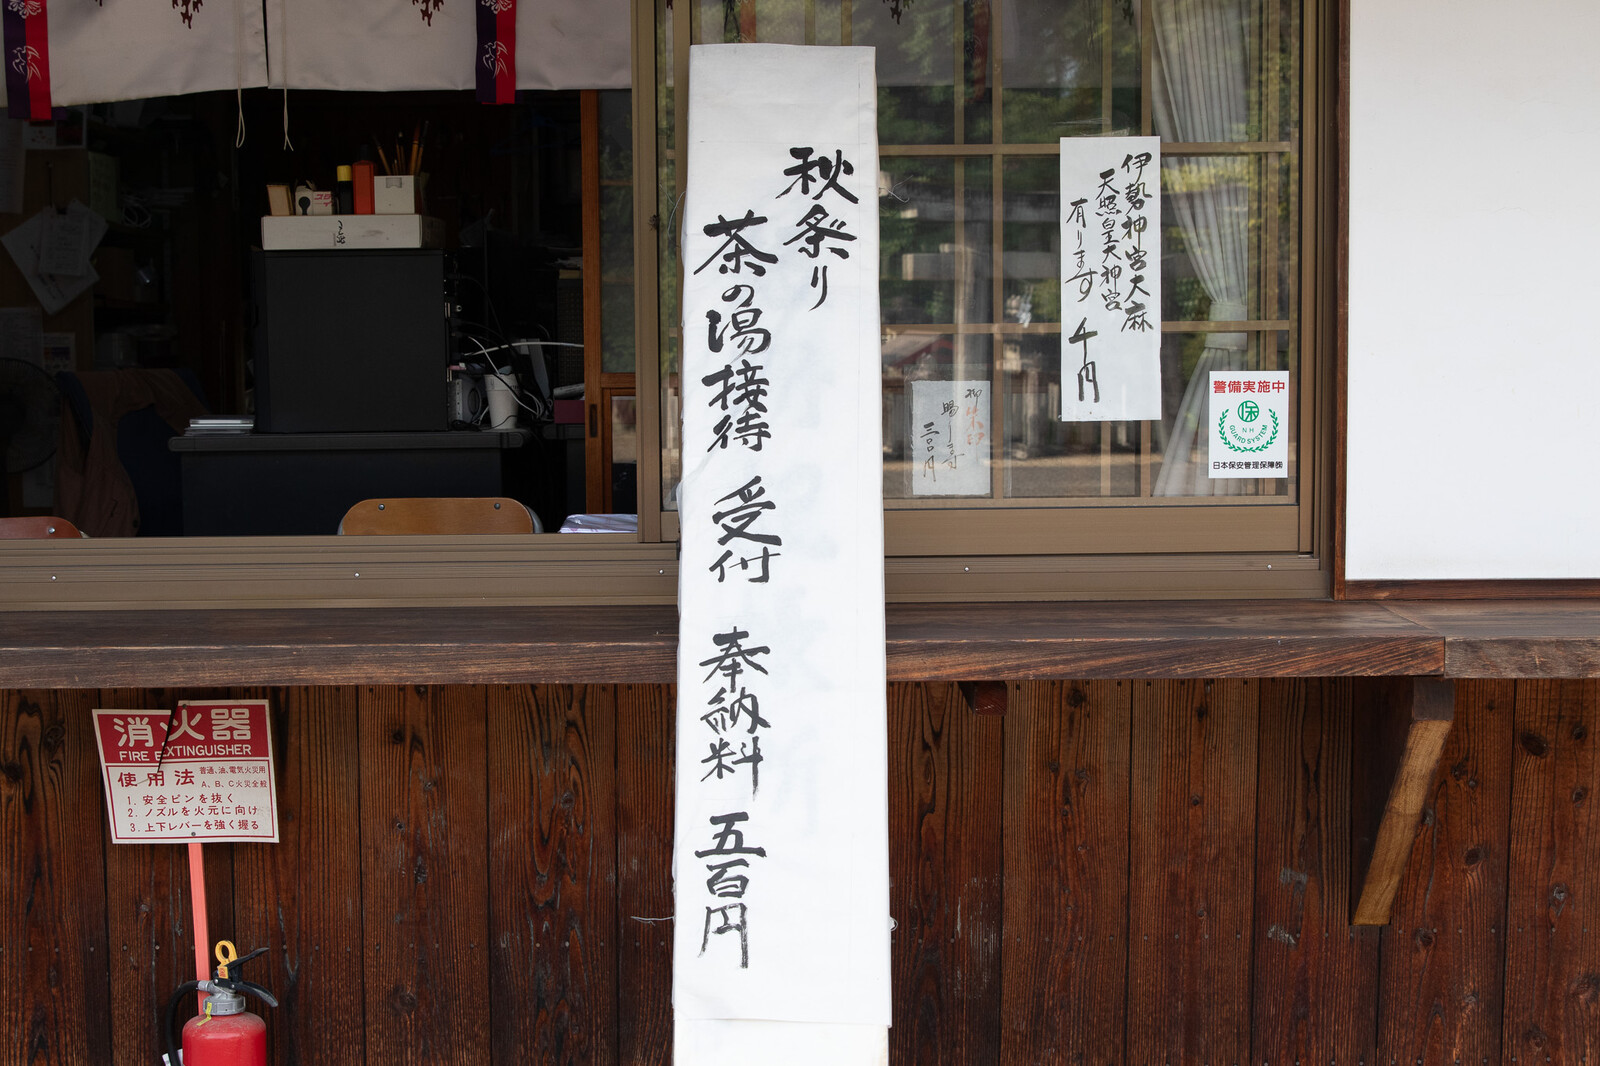 秋祭り
茶の湯接待 受付 奉納料 五百円
伊勢神宮大麻
天照皇大神宮
有ります 千円
三〇〇円
警備実施中
保
NH
GUARD SYSTEM
日本保安管理保障㈱
消火器
FIRE EXTINGUISHER
使用法
普通、油、電気火災用
A、B、C火災全般
1. 安全ピンを抜く
2. ノズルを火元に向け
3. 上下レバーを強く握る